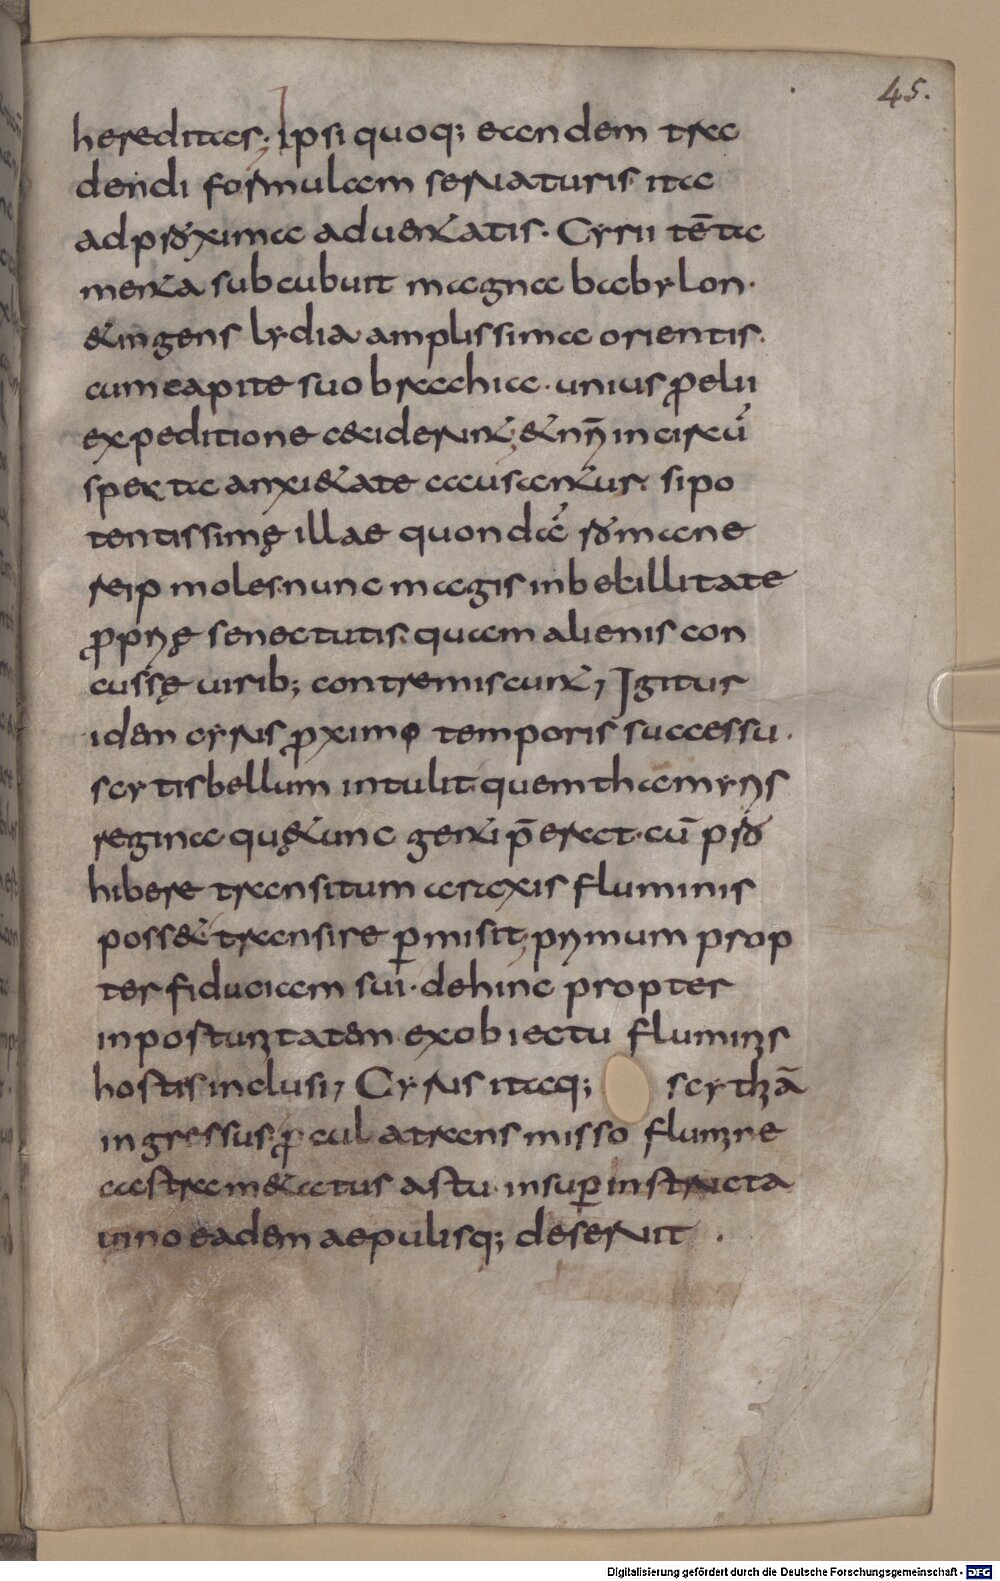 45.
hereditas; Ipsi quoq; eandem tra
dendi formulam seruaturis ita
ad proxima aduentatis. Cyrii tēta
menta subcubuit magna babylon.
& ingens lydia amplissima orientis.
cum capite suo brachia. unius p̄elii
expeditione ceciderunt; & nr̄i incircū
specta anxi&ate accusantur. sipo
tentissimę illae quondā romane
reip moles. nunc magis inbekillitate
propryę senectutis. quam alienis con
cussę uirib; contremiscunt; Igitur
idem cyrus proximo temporis successu.
scytis bellum intulit. quem thamyris
regina quę tunc genti p̄erat. cū pro
hibere transitum araxis fluminis
poss& transire permisit; primum prop
ter fiduciam sui. dehinc propter
inpostunitatem ex obiectu fluminis
hostis inclusi; Cyrus itaq; scythiā
ingressus. procul a transmisso flumine
castra m&atus astu. insuper instructa
uino eadem aepulisq; deseruit .
Digitalisierung gefördert durch die Deutsche Forschungsgemeinschaft - DFG